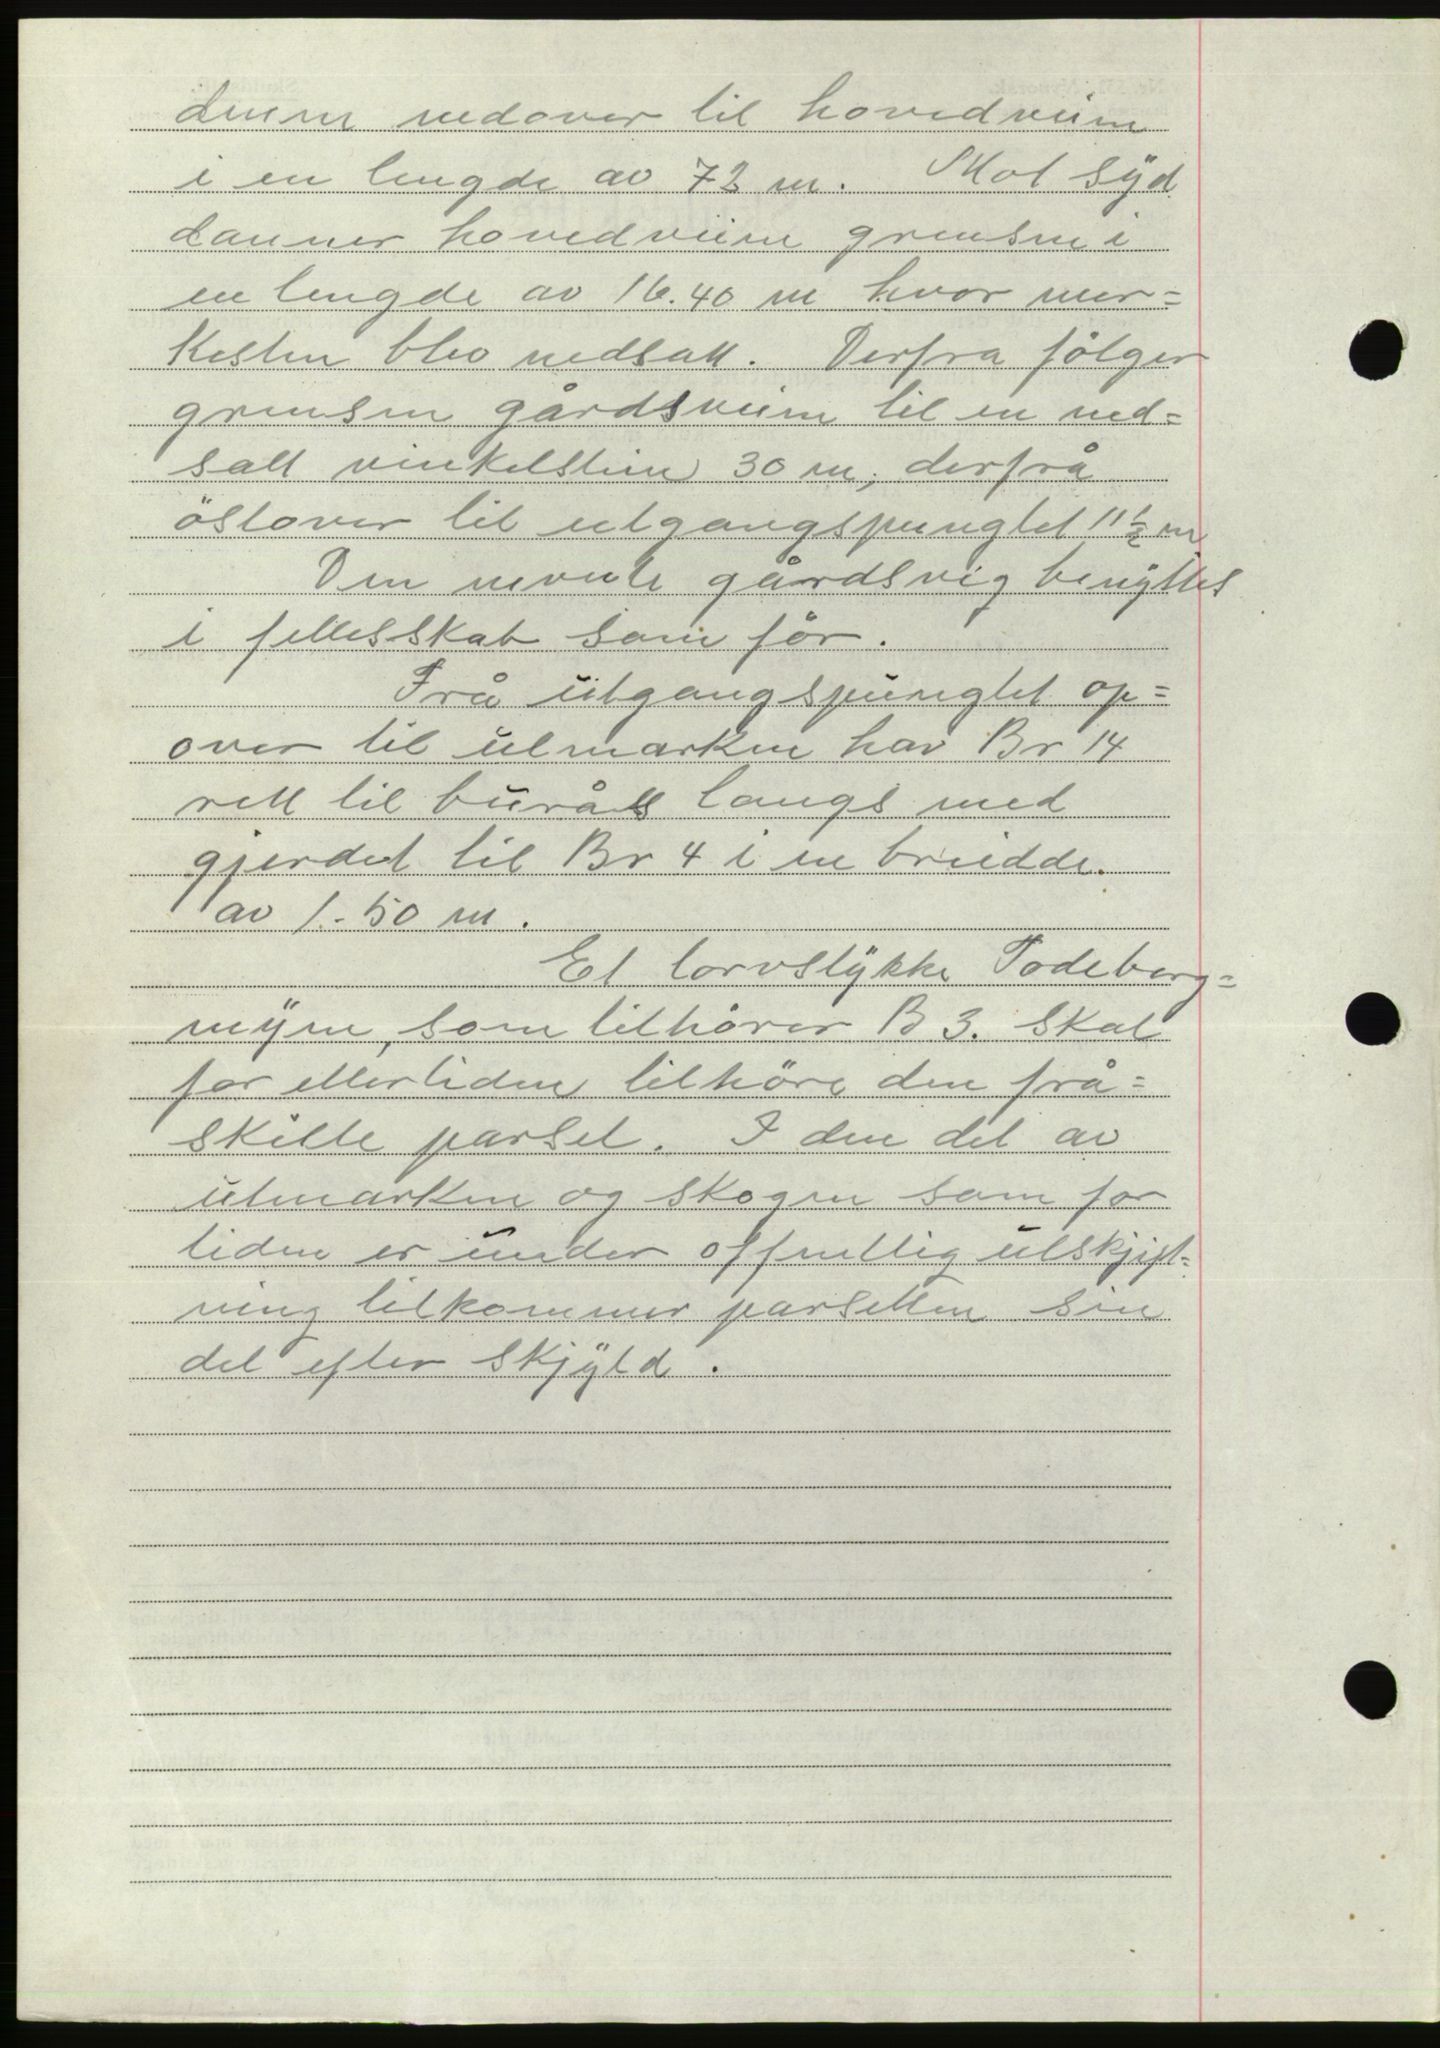 denne nedover til hovedveien
i en lengde av 73 m. Mot syd
danner hovedveien grensen i
en lengde av 16.40 m hvor mer=
kesten blev nedsatt. Derfra følger
grensen gårdsveien til en ned=
satt vinkelstein 30 m; derfrå
östover til utgangspungtet 11½ m
Den nevnte gårdsveig benyttes
i fellesskab som för.
Frå utgangspungtet op=
over til utmarken hav Br 14
rett til buråk langs med
gjerdet til Br 4 i en breidde.
av 1.50 m.
Et torvstykke Todeberg=
myren, som tilhörer B 3. skal
for ettertiden tilhöre den frå=
skilte parsel. I den del av
utmarken og skogen som for
tiden er under offentlig utskjift=
ning tilkommer parsellen sin
del efter skjyld.